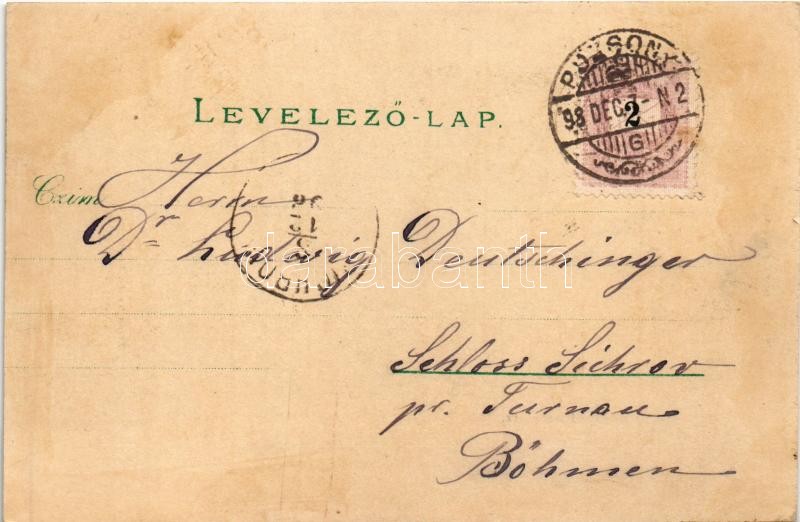 LEVELEZŐ-LAP.
POZSONY
98 DEC. 7- N2
G
2
Czim Herrn
Dr Ludwig Deutschinger
Schloss Sichrov
pr. Turnau
Böhmen
darabanth